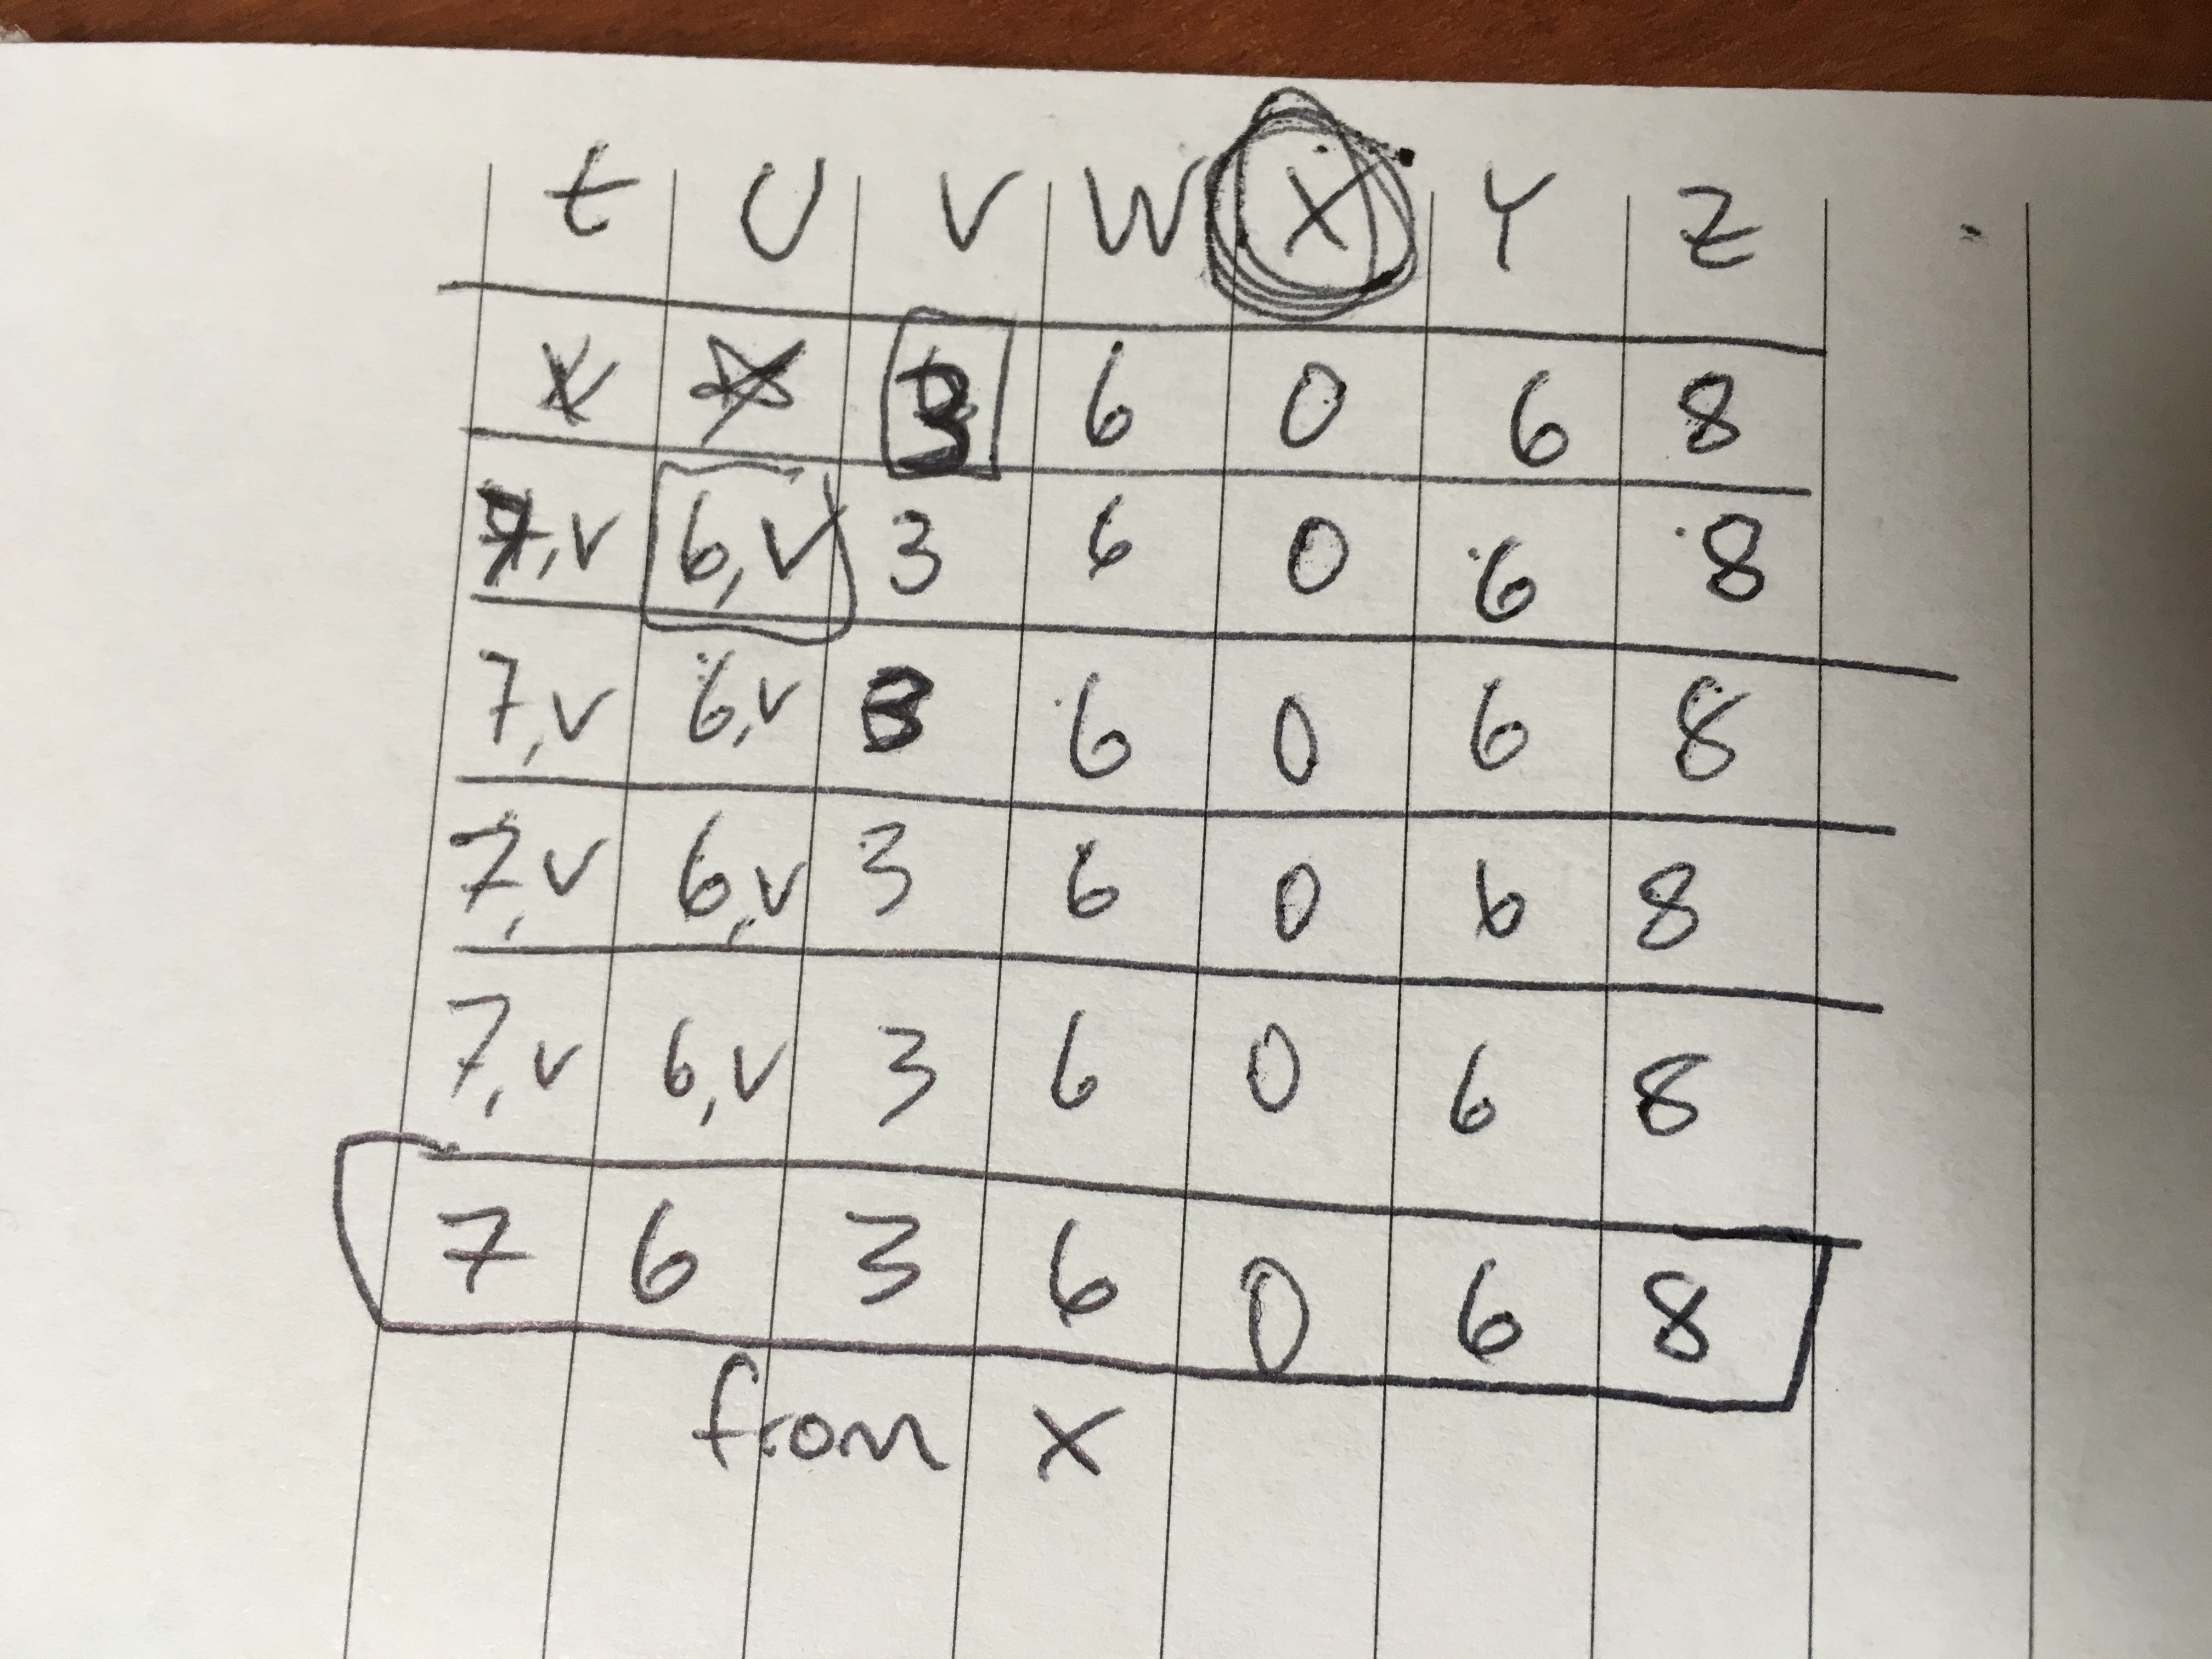 t U V W X Y Z
3 6 0 6 8
7,v 6,v 3 6 0 6 8
7,v 6,v 3 6 0 6 8
7,v 6,v 3 6 0 6 8
7,v 6,v 3 6 0 6 8
7 6 3 6 0 6 8
from X